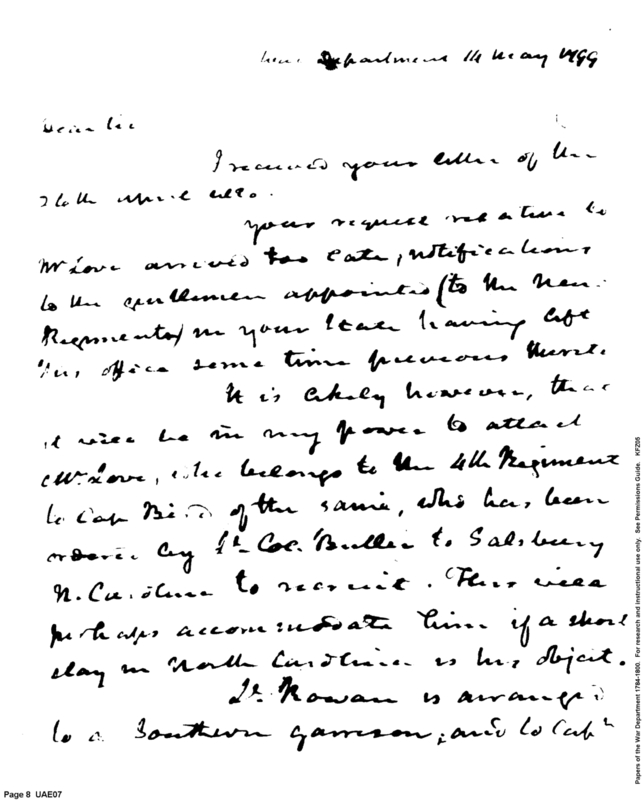 War Department 14 May 1799
Dear Sir
I received your letter of the
26th April ulto.
Your request relative to
Mr Love arrived too late, notifications
to the gentlemen appointed (to the new
Regiments) in your State having left
this office some time previous thereto.
It is likely however, that
it will be in my power to attach
Mr. Love, who belongs to the 4th Regiment
to Cap Bird of the same, who has been
ordered by Lt. Col. Butler to Salsbury
N. Carolina to recruit. This will
perhaps accommodate him if a short
stay in North Carolina is his object.
Lt. Rowan is arranged
to a Southern garrison; and to Capn
Page 8 UAE07
Papers of the War Department 1784-1800. For research and instructional use only. See Permissions Guide. KFZ05